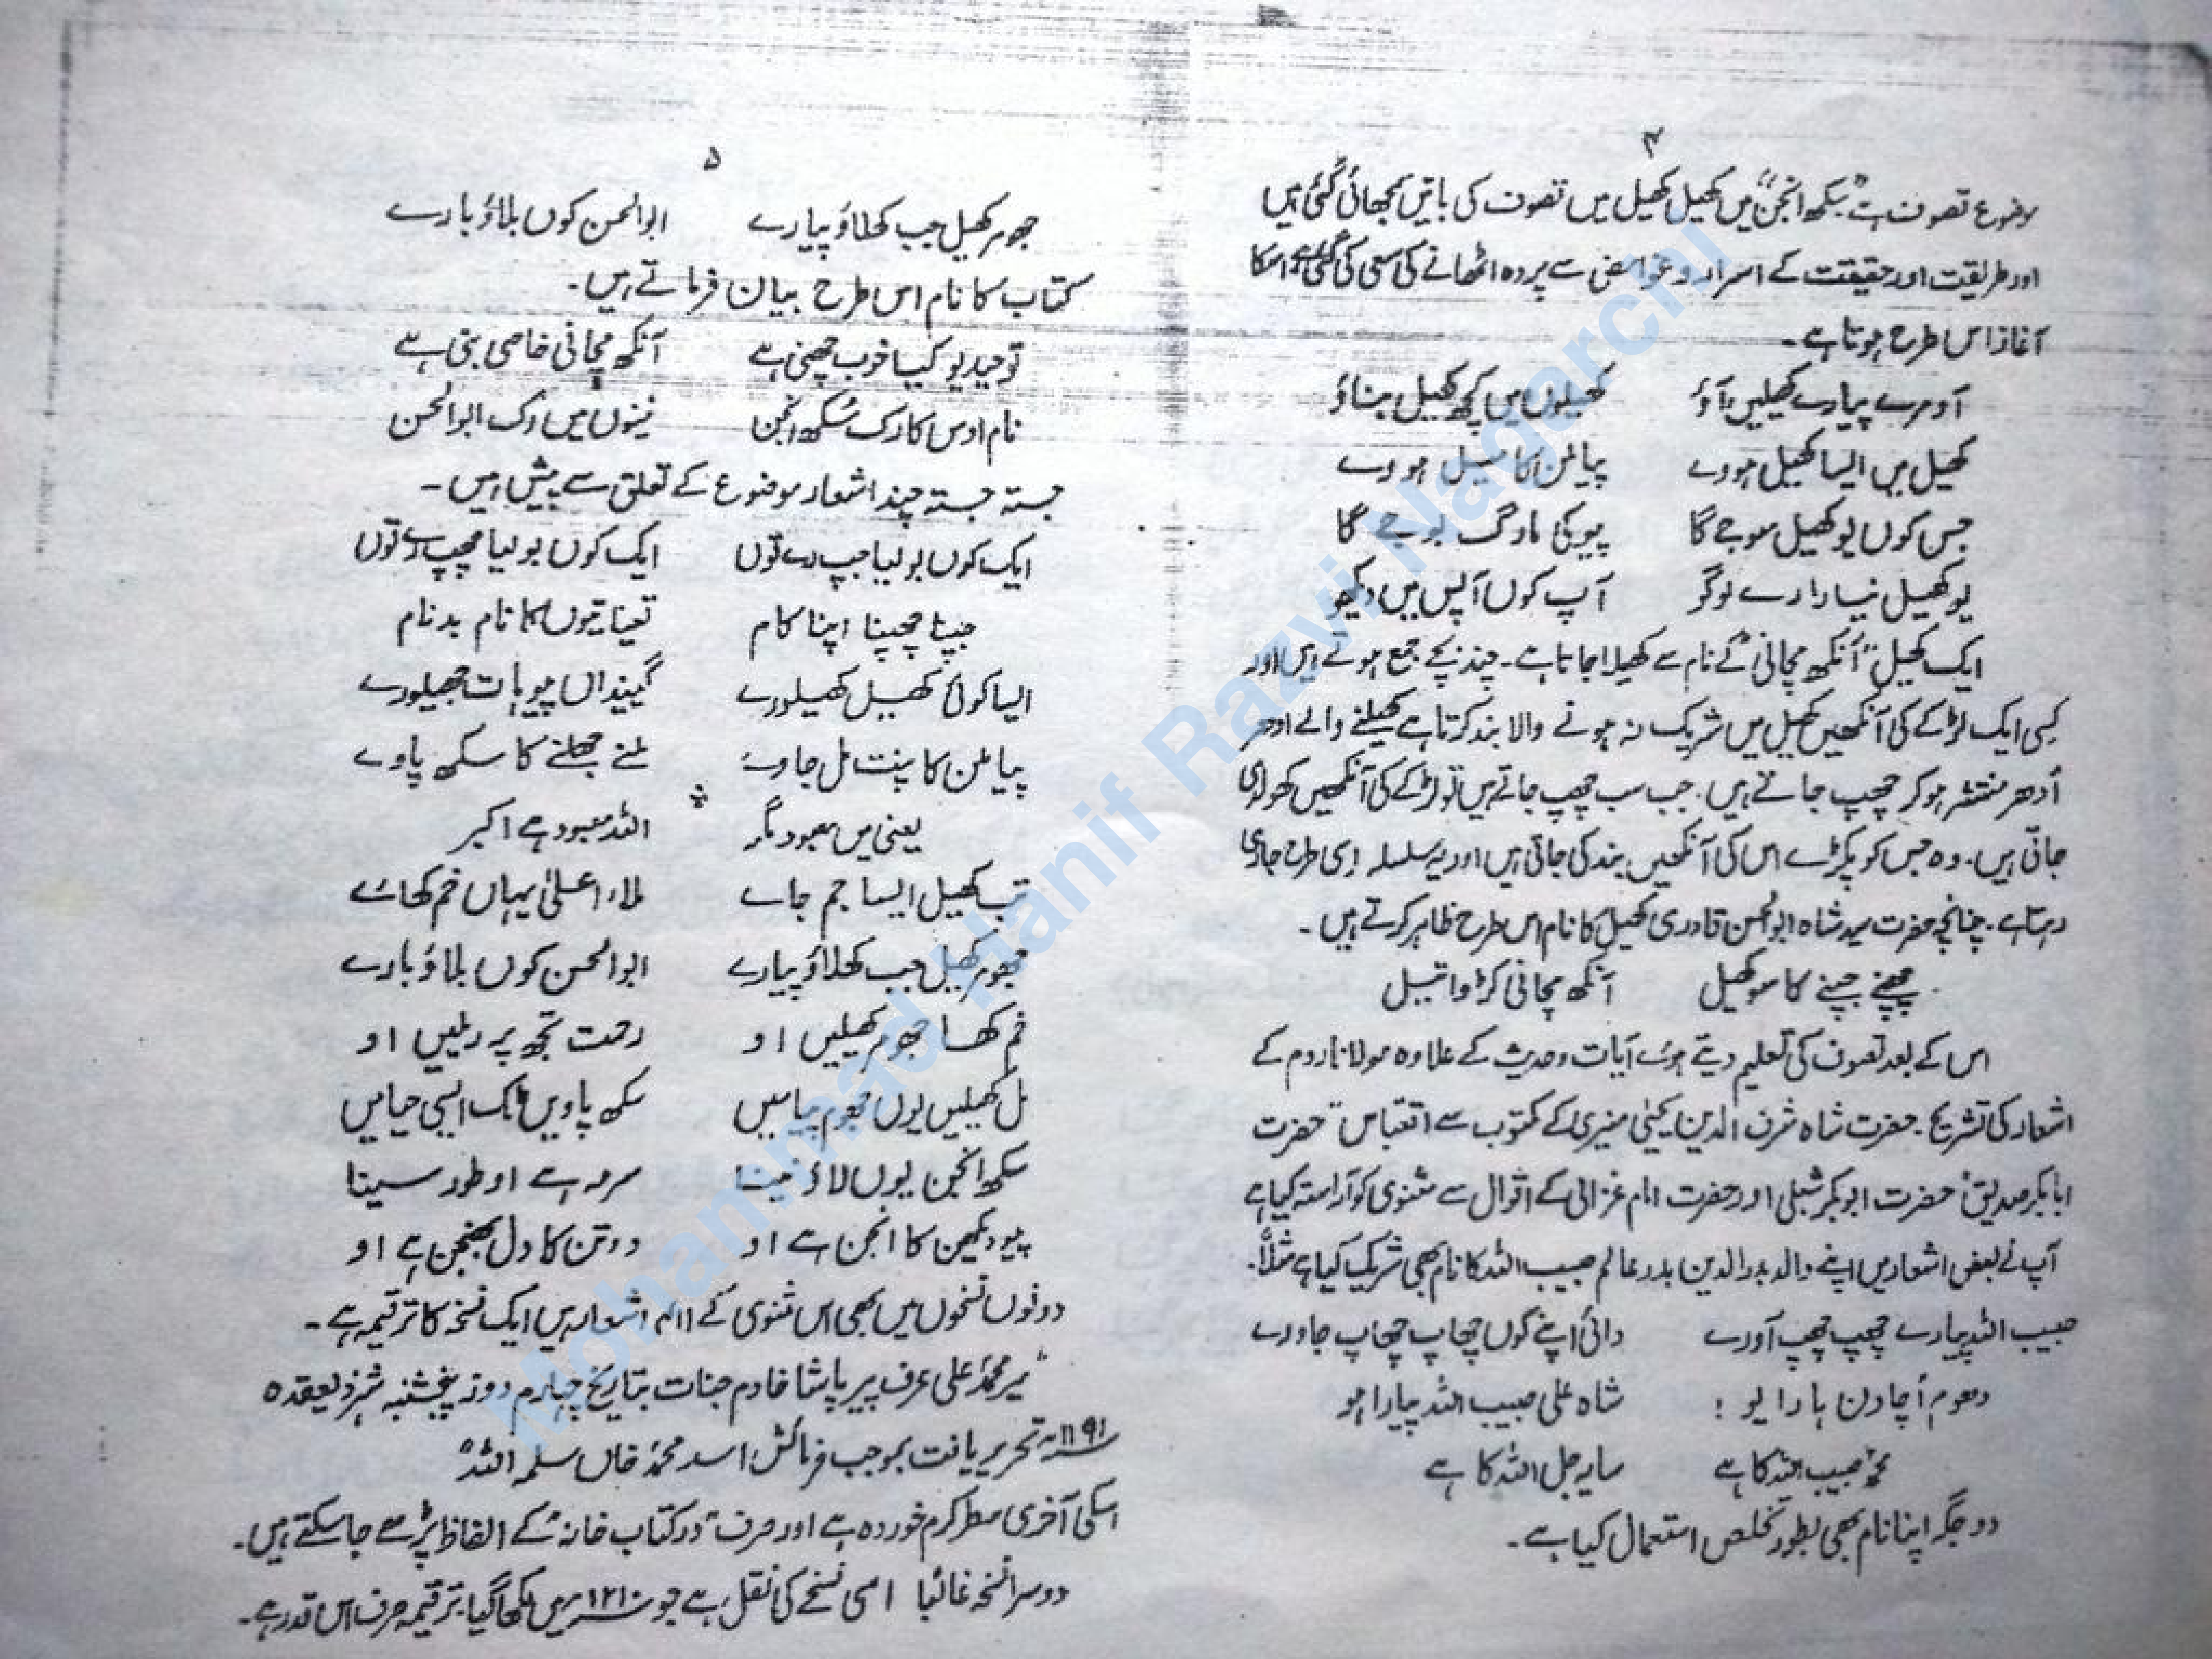 ۴
موضوع تصوف ہے "سکھ انجن" میں کھیل کھیل میں تصوف کی باتیں سمجھائی گئی ہیں
اور طریقت اور حقیقت کے اسرار و غوامض سے پردہ اٹھانے کی سعی کی گئی ہے اسکا
آغاز اس طرح ہوتا ہے۔
آو مرے پیارے کھیلیں آؤ کھیلوں میں کچھ کھیل بناؤ
کھیل میں ایسا کھیل ہووے پیا ملن کا میل ہووے
جس کوں یو کھیل سوجے گا پیو کی مارگ بوجے گا
یو کھیل نیارا رے لوگر آپ کوں آپس میں دیکھو
ایک کھیل "آنکھ مچانی" کے نام سے کھیلا جاتا ہے۔ چند بچے جمع ہوتے ہیں اور
کسی ایک لڑکے کی آنکھیں کھیل میں شریک نہ ہونے والا بند کرتا ہے کھیلنے والے ادھر
اُدھر منتشر ہو کر چھپ جاتے ہیں۔ جب سب چھپ جاتے ہیں تو لڑکے کی آنکھیں کھولدی
جاتی ہیں۔ وہ جس کو پکڑے اس کی آنکھیں بند کی جاتی ہیں اور یہ سلسلہ اسی طرح جاری
رہتا ہے۔ چنانچہ حضرت سید شاہ ابوالحسن قادری کھیل کا نام اس طرح ظاہر کرتے ہیں۔
چھپنے جپنے کا سو کھیل آنکھ مچانی کڑوا تیل
اس کے بعد تصوف کی تعلیم دیتے ہوئے آیات و حدیث کے علاوہ مولانا روم کے
اشعار کی تشریح۔ حضرت شاہ شرف الدین یحییٰ منیری کے مکتوب سے اقتباس حضرت
ابابکر صدیقؓ حضرت ابوبکر شبلی اور حضرت امام غزالی کے اقوال سے مثنوی کو آراستہ کیا ہے
آپ نے بعض اشعار میں اپنے والد بدر الدین بدر عالم حبیب اللہ کا نام بھی شریک کیا ہے مثلاً۔
حبیب اللہ پیارے چھپ چھپ آورے دائی اپنے گوں چھاپ چھاپ جاورے
دھوم اُچا دن ہارا یو : شاہ علی حبیب اللہ پیارا ہو
محمدؐ حبیب اللہ کا ہے سایہ جل اللہ کا ہے
دو جگہ اپنا نام بھی بطور تخلص استعمال کیا ہے۔
۵
جھومر کھیل جب کھلاؤ پیارے ابوالحسن کوں بلاؤ بارے
کتاب کا نام اس طرح بیان فرماتے ہیں۔
توحید یو کیسا خوب چھنی ہے آنکھ مچانی خاصی بنی ہے
نام اوس کا رک سُکھ انجن نینوں میں رک ابوالحسن
جستہ جستہ چند اشعار موضوع کے تعلق سے پیش ہیں۔
ایک کوں بولیا جپ رے توں ایک کوں بولیا چھپ رے توں
جپنا چھپنا اپنا کام تعیناتیوں کا نام بدنام
ایسا کوئی کھیل کھیلورے گینداں پیو ہات جھیلورے
پیا ملن کا پنت مل جاوے ملنے جھلنے کا سکھ پاوے
یعنی میں معبود مگر اللہ معبود ہے اکبر
تب کھیل ایسا جم جائے ملاء اعلیٰ یہاں خم کھائے
جھومر کھیل جب کھلاؤ پیارے ابوالحسن کوں بلاؤ بارے
خم کھا جھوم کھیلیں او رحمت تجھ پر ریلیں او
مل کھیلیں یوں جھوم پیا میں سکھ پاویں ایسی حیا میں
سکھ انجن یوں لاؤ نینا سرمہ ہے او طور سینا
پیو دیکھن کا انجن ہے او دوتن کا دل بھنجن ہے او
دونوں نسخوں میں بھی اس مثنوی کے ۴۱۱ اشعار ہیں ایک نسخہ کا ترقیمہ ہے۔
"میر محمد علی عرف پیر پاشا خادم جنات بتاریخ چہارم روز پنجشنبہ شہر ذیقعدہ
۱۱۹۱ھ تحریر یافت بموجب فرمائش اسد محمد خاں سلمہ اللہ"
اسکی آخری سطر کرم خوردہ ہے اور صرف "در کتاب خانہ" کے الفاظ پڑھے جا سکتے ہیں۔
دوسرا نسخہ غالباً اسی نسخے کی نقل ہے جو ۱۲۱۰ھ میں لکھا گیا۔ ترقیمہ صرف اس قدر ہے۔
Mohammad Hanif Razvi Nagarchi